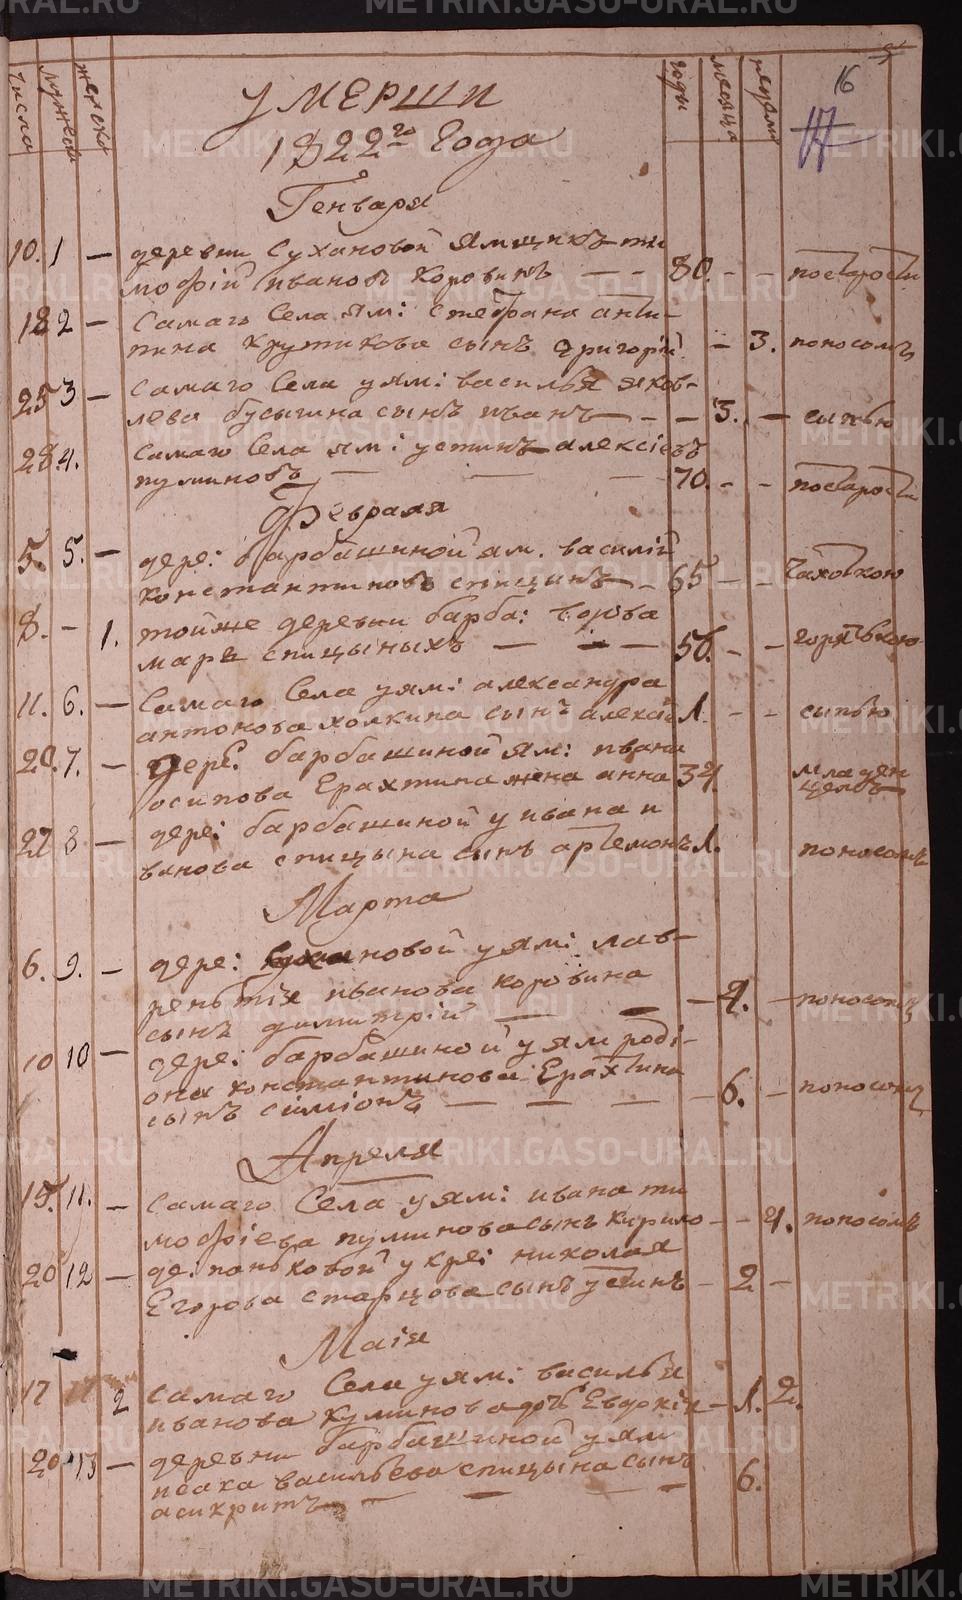 числа мужеска женска годы месяца недели
16
17
умерши
1822го Года
Генваря
10. 1 — деревни Сухановой ямщикъ ти
мофій ивановъ коровинъ — — 80. - - постарости
18 2 — самаго Села ям: стефана анти-
пина крутикова сынъ григорій - 3. поносомъ
25 3 — самаго Села у ям: василья яков-
лева бусыгина сынъ иванъ — - - 3. — сыпью
28. 4. самаго Села ям: устинъ алексіевъ
пулиновъ — — — 70. - - постарости
Февраля
5. 5. — дере: барбашиной ям. василій
константиновъ спицинъ - 65 - - чахоткою
8. - 1. тойже деревни барба: вдова
марѳа спицыныхъ — - — 56. - - горячкою
11. 6. — самаго Села у ям: александра
антонова холкина сынъ алексій 1. - - сыпью
20. 7. — дере: барбашиной ям: ивана
осипова Ерахтина жена анна 34 младен
цемъ
22 8 — дере: барбашиной у ивана и
ванова спицына сынъ артемонъ 1. поносомъ
Марта
6. 9. — дере: новой у ям: лав-
рентія иванова коровина
сынъ димитрій — — — 2. — поносомъ
10 10 — дере: барбашиной у ям роді-
она константинова Ерахтина
сынъ симіонъ — — — - 6. - поносомъ
Апреля
15. 11. — самаго Села у ям: ивана ти
мофіева пулинова сынъ курило - - 2. поносомъ
20 12 — де. паньковой у кре: николая
Егорова старцова сынъ устинъ - 2 —
Маія
17 2 самаго Села у ям: василья
иванова кулинова дочь Евдокія - 1. 2.
20 13 — деревни барбашиной у ям
исака васильева спицына сынъ
асикритъ — — — 6.
METRIKI.GASO-URAL.RU